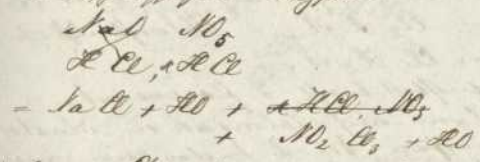 NaO NO5
HCl, HCl
= NaCl + HO + HCl. NO3
+ NO2 Cl3 + HO